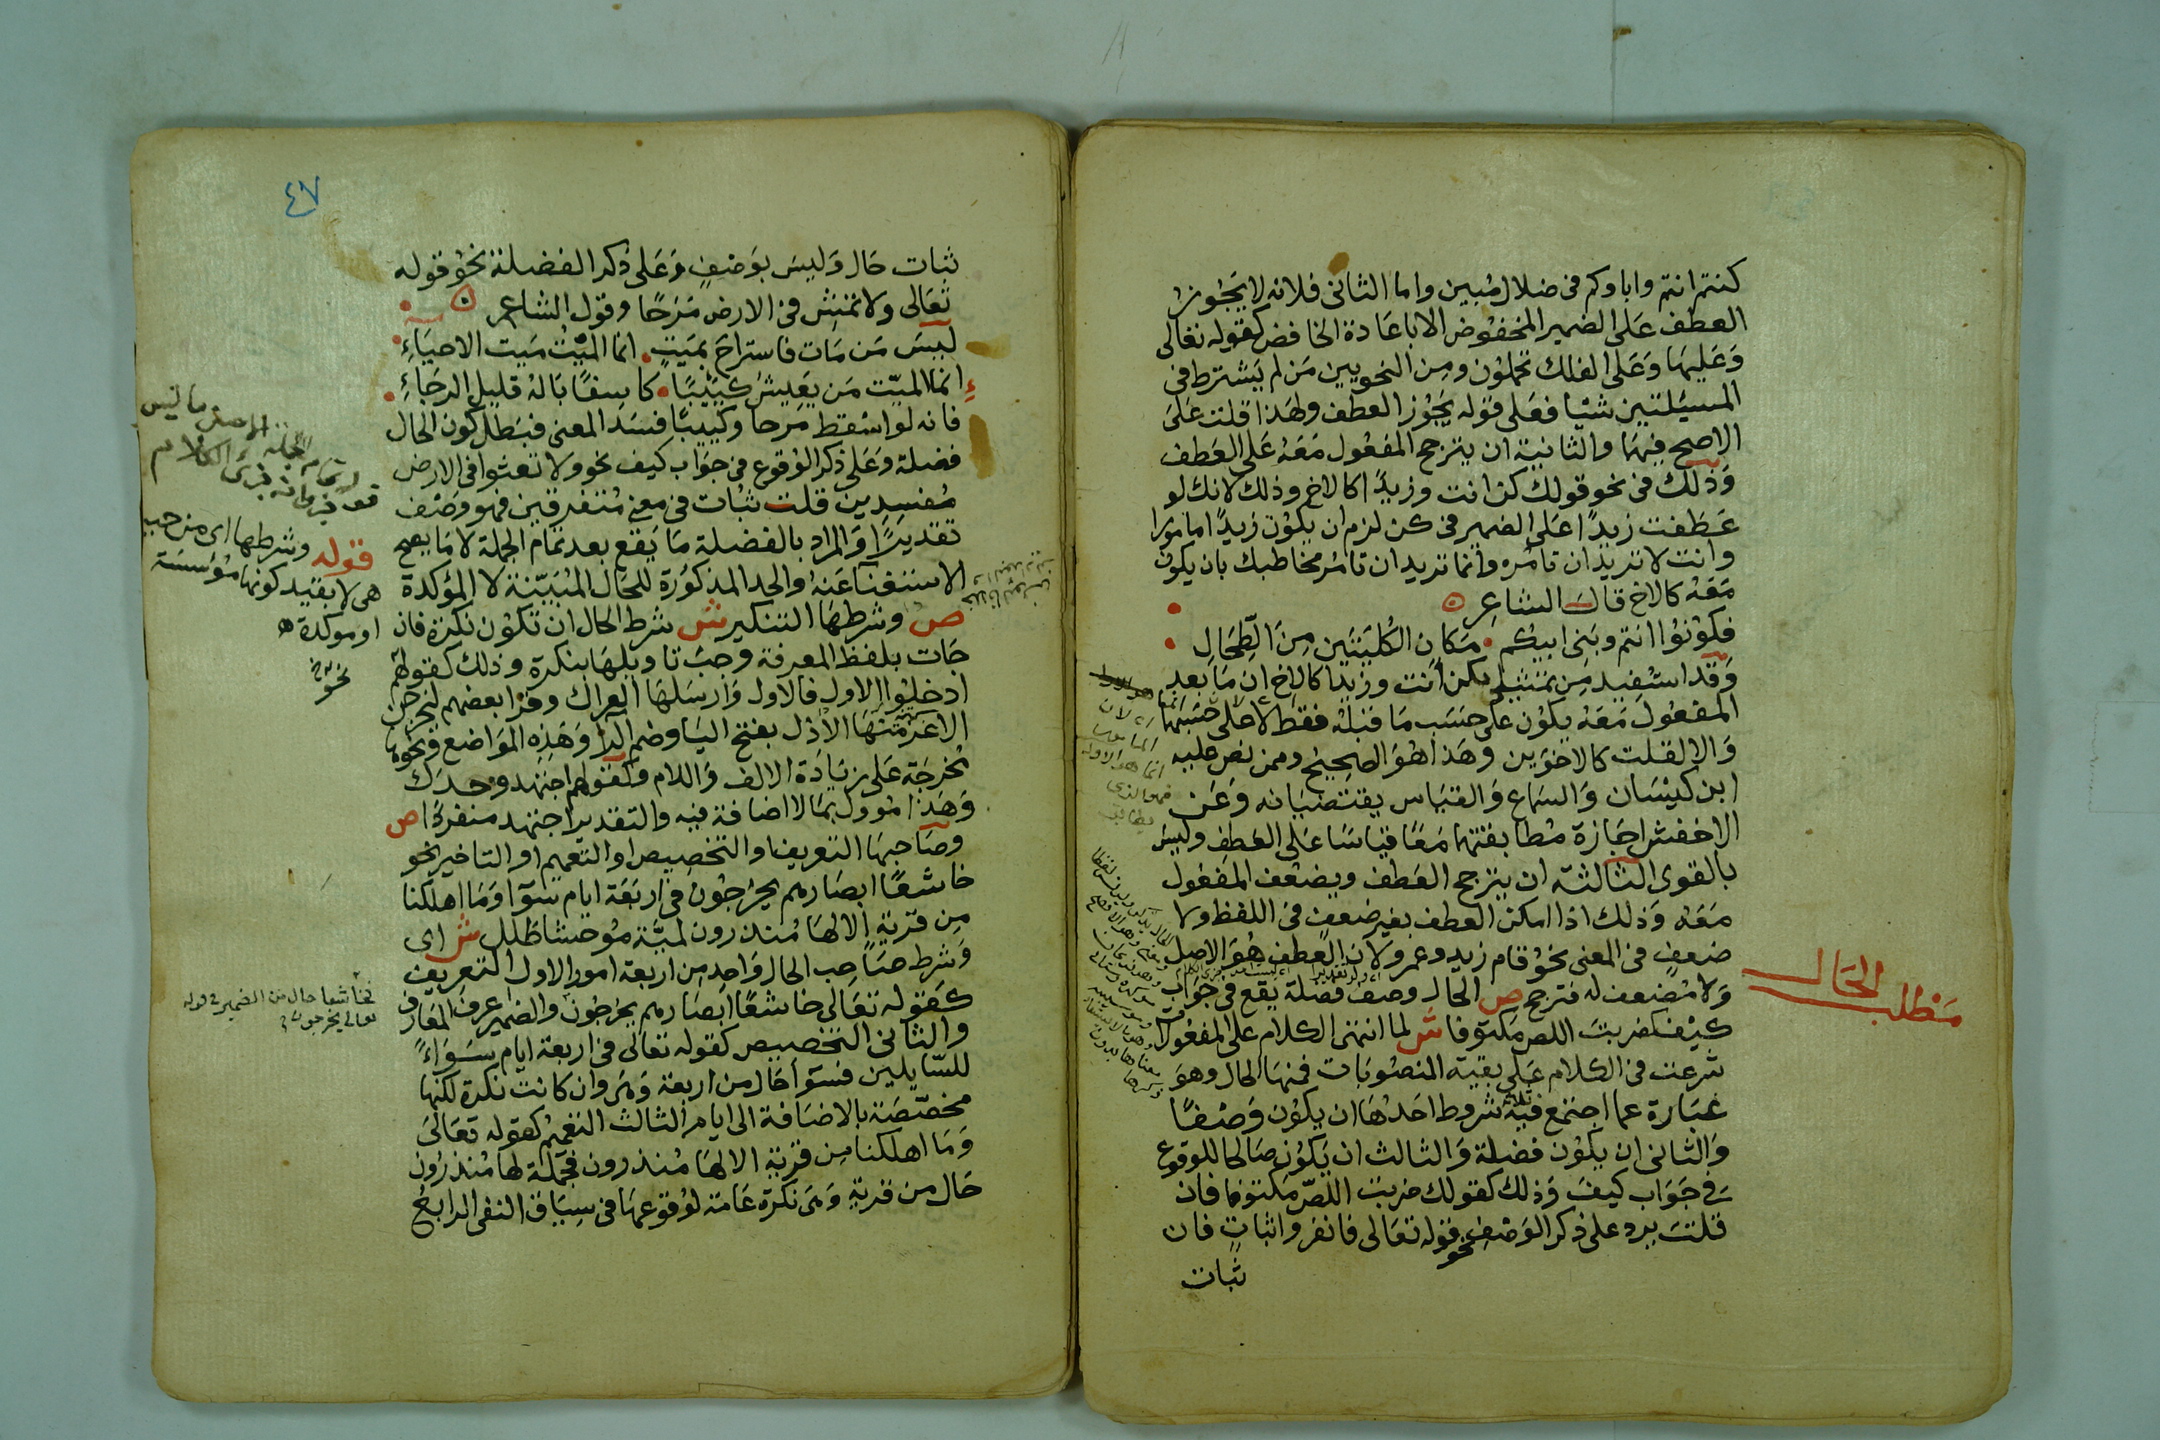 كنتم انتم واباوكم فى ضلال مبين واما الثانى فلانه لا يجوز
العطف على الضمير المخفوض الا باعادة الخافض كقوله تعالى
وعليها وعلى الفلك تحملون ومن النحويين من لم يشترط فى
المسيلتين شيا فعلى قوله يجوز العطف ولهذا قلت على
الاصح فيهما والثانية ان يترجح المفعول معه على العطف
وذلك فى نحو قولك كن انت وزيدًا كالاخ وذلك لانك لو
عطفت زيدًا على الضمير فى كن لزم ان يكون زيدًا مامورا
وانت لا تريد ان تامره وانما تريد ان تامر مخاطبك بان يكون
معه كالاخ قال الشاعر
فكونوا انتم وبنى ابيكم مكان الكليتين من الطحال
وقد استفيد من تمثيلى بكن انت وزيدا كالاخ ان ما بعد
المفعول معه يكون على حسب ما قبله فقط لا على حسبهما
والا لقلت كالاخوين وهذا هو الصحيح وممن نص عليه
ابن كيسان والسماع والقياس يقتضيانه وعن
الاخفش اجازة مطابقتهما معًا قياسا على العطف وليس
بالقوى الثالثة ان يترجح العطف ويضعف المفعول
معه وذلك اذا امكن العطف بغير ضعف فى اللفظ ولا
ضعف فى المعنى نحو قام زيد وعمرو لان العطف هو الاصل
ولا مضعف له فترجح ص الحال وصف فضلة يقع فى جواب
كيف كضربت اللص مكتوفا ش لما انتهى الكلام على المفعول
شرعت فى الكلام على بقية المنصوبات فمنها الحال وهو
عبارة عما اجتمع فيه ثلاثة شروط احدها ان يكون وصفًا
والثانى ان يكون فضلة والثالث ان يكون صالحا للوقوع
فى جواب كيف وذلك كقولك ضربت اللص مكتوفا فان
قلت يرد على ذكر الوصف نحو قوله تعالى فانفروا ثبات فان
ثبات
مطلب الحال
٤٧
ثبات حال وليس بوصف وعلى ذكر الفضلة نحو قوله
تعالى ولا تمش فى الارض مرحًا وقول الشاعر
ليس من مات فاستراح بميت انما الميت ميت الاحياء
انما الميت من يعيش كييبًا كاسفًا باله قليل الرجاء
فانه لو اسقط مرحا وكييبًا فسد المعنى فيبطل كون الحال
فضلة وعلى ذكر الوقوع فى جواب كيف نحو ولا تعثوا فى الارض
مفسدين قلت ثبات فى معنى متفرقين فهو وصف
تقديرًا والمراد بالفضلة ما يقع بعد تمام الجملة لا ما يصح
الاستغنآ عنه والحد المذكورة للحال المبيّنة لا المؤكدة
ص وشرطها التنكير ش شرط الحال ان تكون نكرة فان
جات بلفظ المعرفة وجب تاويلها بنكرة وذلك كقولهم
ادخلوا الاول فالاول وارسلها العراك وقرا بعضهم ليخرجن
الاعز منها الاذل بفتح اليا وضم الرا وهذه المواضع ونحوها
مخرجة على زيادة الالف واللام وكقولهم اجتهد وحدك
وهذا موول بما لا اضافة فيه والتقدير اجتهد منفردًا ص
وصاحبها التعريف او التخصيص او التعميم او التاخير نحو
خاشعًا ابصارهم يخرجون فى اربعة ايام سوآ وما اهلكنا
من قرية الا لها منذرون لميّة موحشا طلل ش اى
وشرط صاحب الحال واحد من اربعة امور الاول التعريف
كقوله تعالى خاشعًا ابصارهم يخرجون والضمير عرف المعارف
والثانى التخصيص كقوله تعالى فى اربعة ايام سواءً
للسايلين فسوآ حال من اربعة وهى وان كانت نكرة لكنها
مخصّصة بالاضافة الى ايام الثالث التعميم كقوله تعالى
وما اهلكنا من قرية الا لها منذرون فجملة لها منذرون
حال من قرية وهى نكرة عامة لوقوعها فى سياق النفى الرابع
قوله وشرطها اى من حيث
هى لا بقيد كونها مؤسسة
او موكدة
خاشعا حال من الضمير فى قوله
تعالى يخرجون